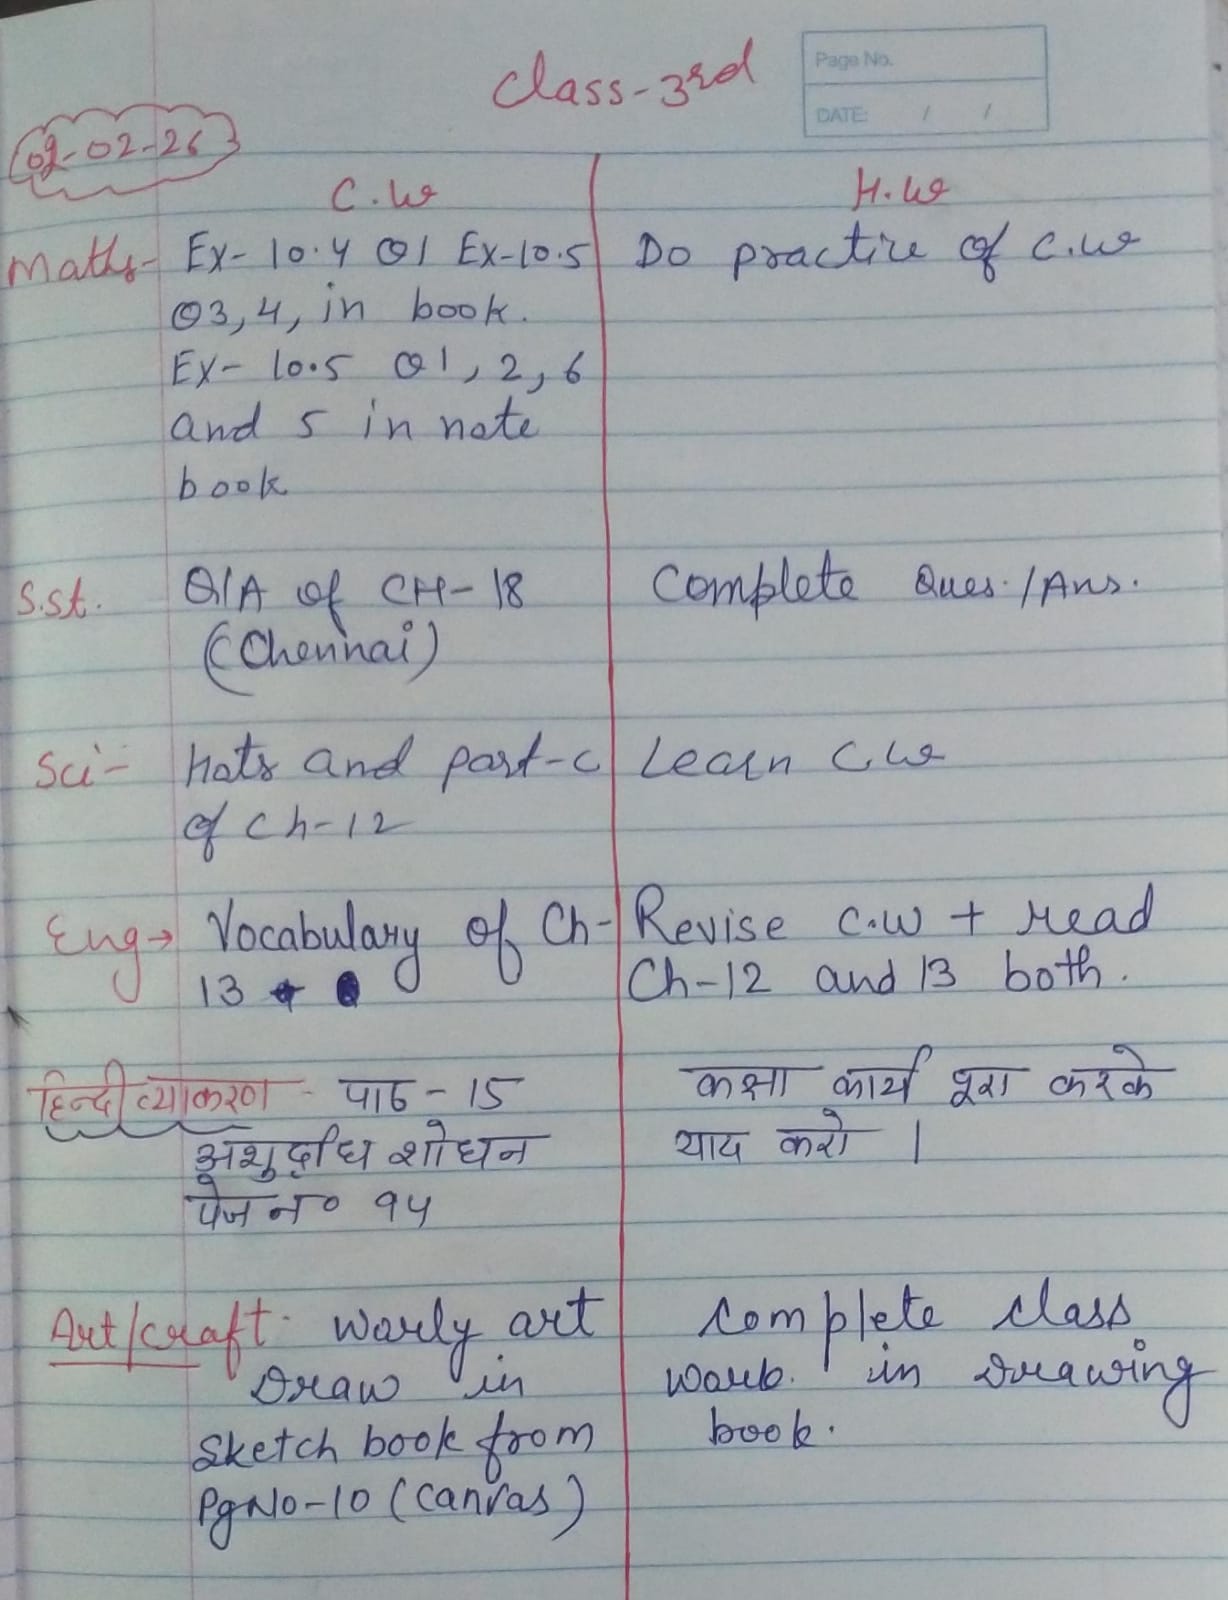 Class-3rd
Page No.
DATE: / /
02-02-26
C.W
H.W
Maths- Ex-10.4 Q1 Ex-10.5
Q3,4, in book.
Ex-10.5 Q1, 2, 6
and 5 in note
book
Do practice of C.W
S.st. Q/A of CH-18
(Chennai)
Complete Ques./Ans.
Sci- Hots and part-c
of Ch-12
Learn C.W
Eng→ Vocabulary of Ch-
13
Revise C.W + read
Ch-12 and 13 both.
हिन्दी व्याकरण - पाठ-15
अशुद्धि शोधन
पेज न० 94
कक्षा कार्य पूरा करके
याद करो ।
Art/craft- Warly art
Draw in
Sketch book from
PgNo-10 (Canvas)
Complete class
work. in Drawing
book.